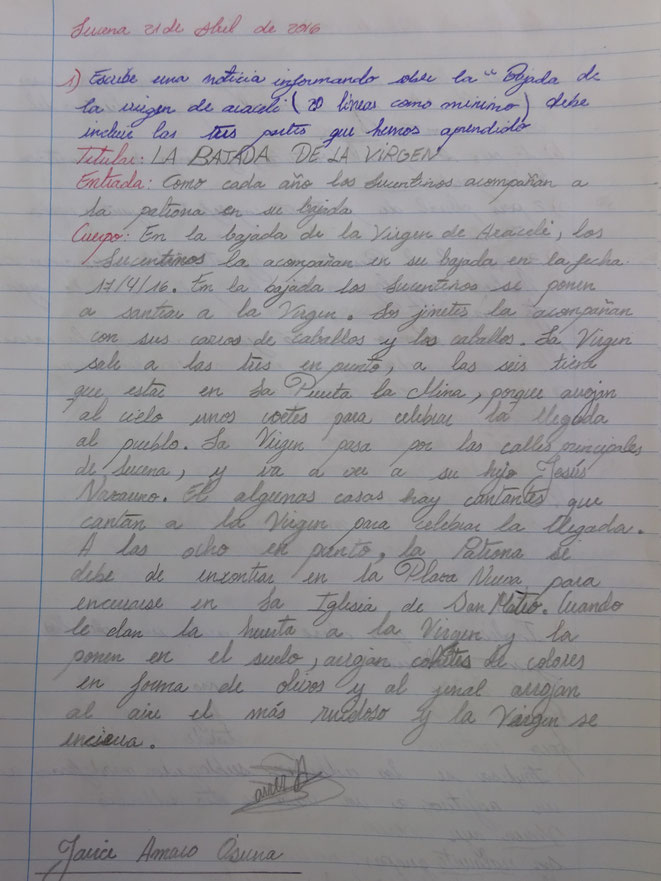 Lucena 21 de Abril de 2016
1) Escribe una noticia informando sobre la "Bajada de
la virgen de araceli (20 líneas como mínimo) debe
incluir las tres partes que hemos aprendido
Titular: LA BAJADA DE LA VIRGEN
Entrada: Como cada año los lucentinos acompañan a
la patrona en su bajada
Cuerpo: En la bajada de la Virgen de Araceli, los
Lucentinos la acompañan en su bajada en la fecha
17/4/16. En la bajada los Lucentinos se ponen
a santiar a la Virgen. Los jinetes la acompañan
con sus carros de caballos y los caballos. La Virgen
sale a las tres en punto, a las seis tiene
que estar en La Puerta la Mina, porque arrojan
al cielo unos coetes para celebrar la llegada
al pueblo. La Virgen pasa por las calles principales
de Lucena, y va a ver a su hijo Jesús
Nazareno. En algunas casas hay cantantes que
cantan a la Virgen para celebrar la llegada.
A las ocho en punto, la Patrona se
debe de encontrar en la Plaza Nueva para
encerrarse en La Iglesia de San Mateo. Cuando
le dan la vuelta a la Virgen y la
ponen en el suelo, arrojan cohetes de colores
en forma de olivos y al final arrojan
al aire el más ruidoso y la Virgen se
encierra.
Javier Amaro Osuna